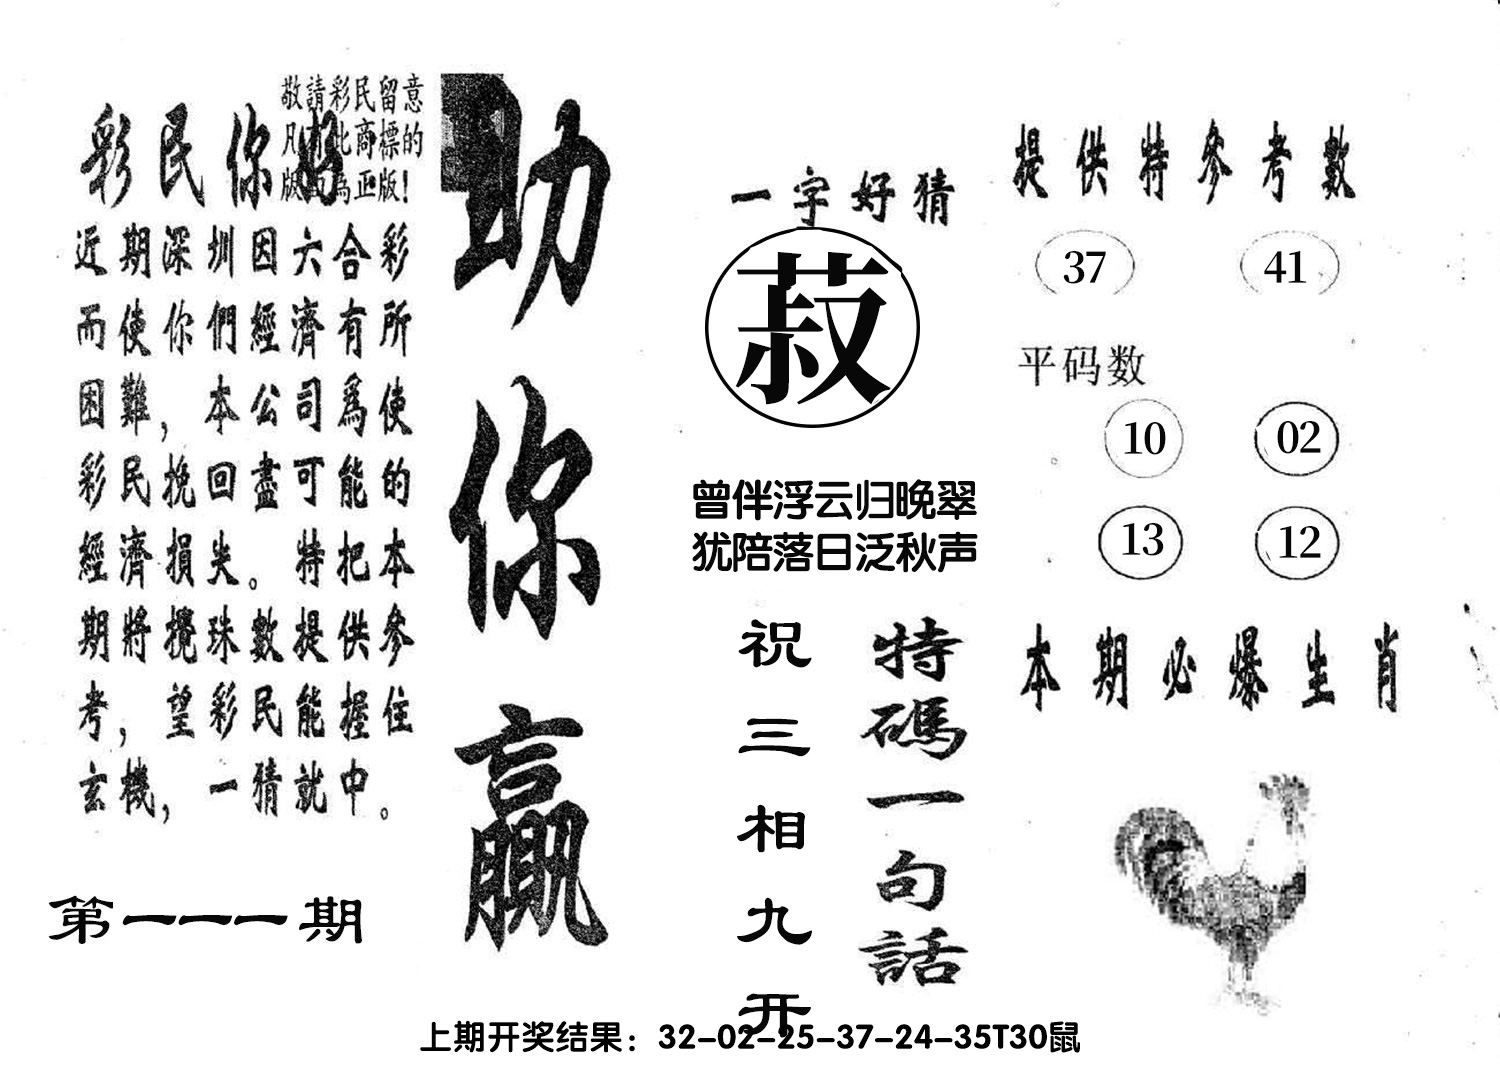 敬請彩民留意
凡有此商標的
版面為正版！
彩民你好
近期深圳因六合彩
而使你們經濟有所
困難，本公司爲使
彩民挽回盡可能的
經濟損失。特把本
期將攪珠數提供參
考，望彩民能握住
玄機，一猜就中。
第一一一期
助你贏
一字好猜
菽
曾伴浮云归晚翠
犹陪落日泛秋声
特碼一句話
祝三相九开
提供特參考數
37 41
平码数
10 02
13 12
本期必爆生肖
上期开奖结果：32-02-25-37-24-35T30鼠